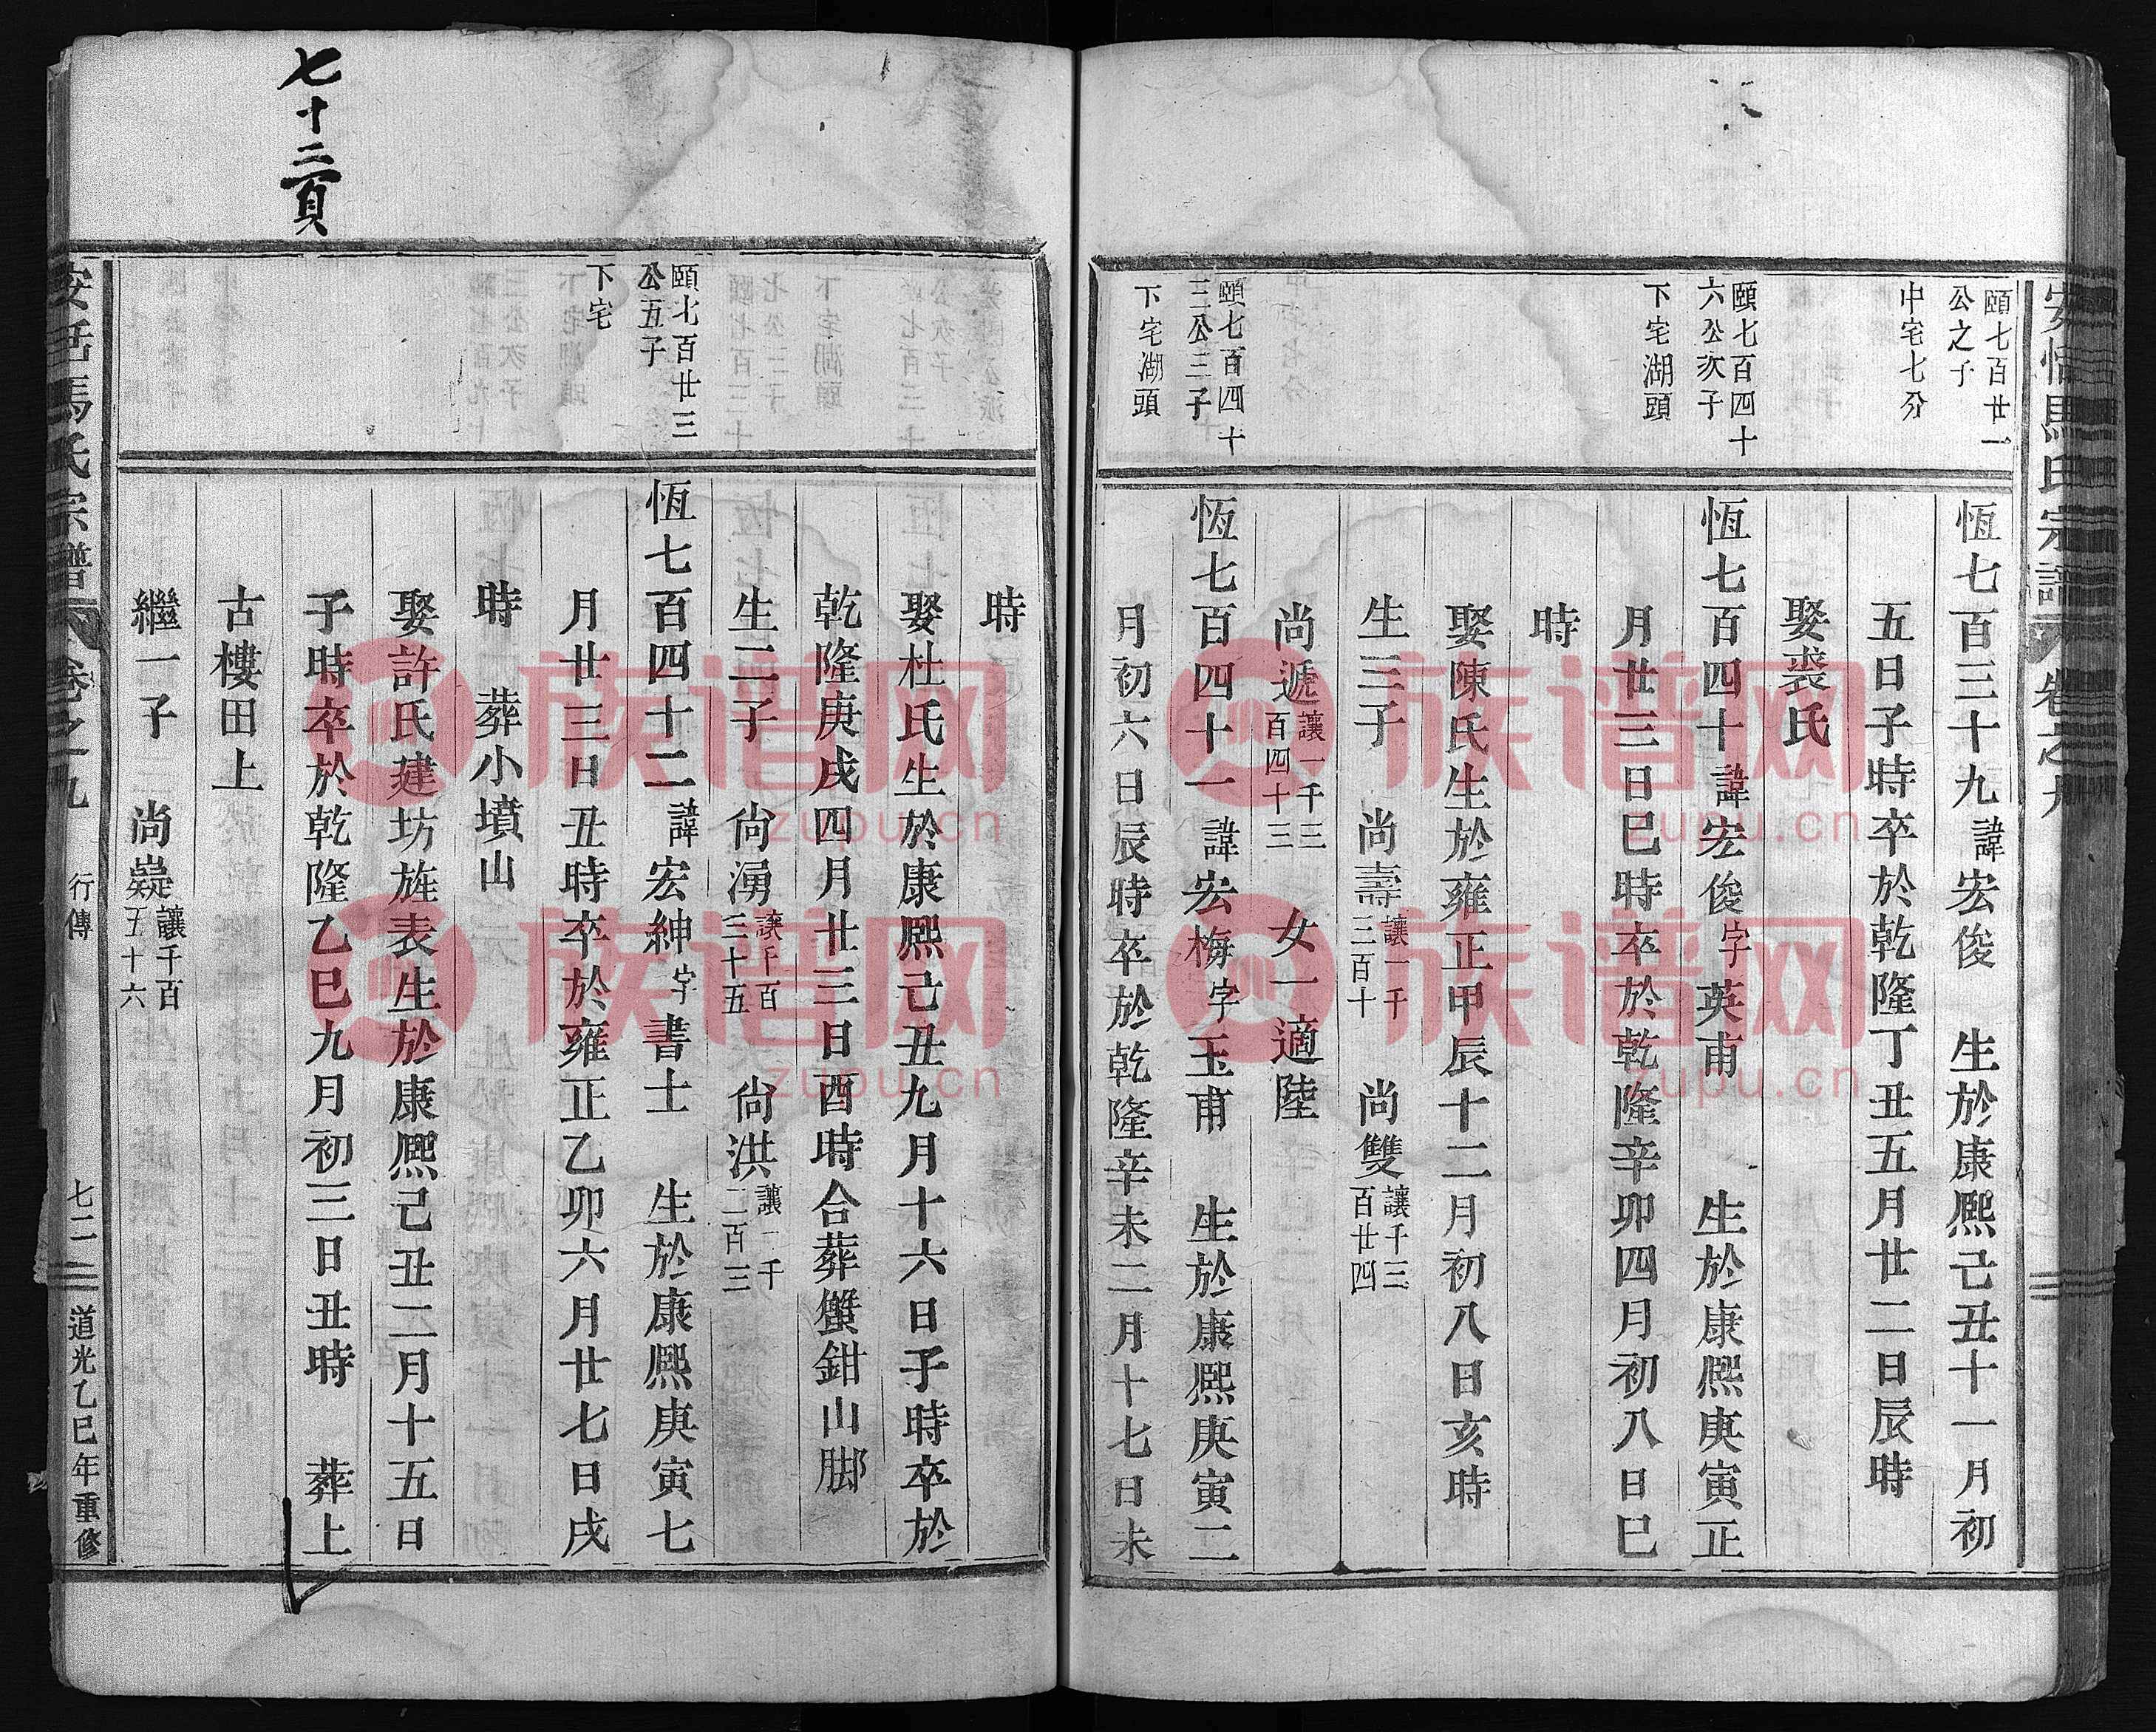 馬氏宗譜 卷之九
頤七百廿一
公之子
中宅七分
恆七百三十九諱宏俊 生於康熙己丑十一月初
五日子時卒於乾隆丁丑五月廿二日辰時
娶裘氏
頤七百四十
六公次子
下宅湖頭
恆七百四十諱宏俊字英甫 生於康熙庚寅正
月廿三日巳時卒於乾隆辛卯四月初八日巳
時
娶陳氏生於雍正甲辰十二月初八日亥時
生三子 尚壽讓一千三百十 尚雙讓千三百廿四
尚遞讓一千三百四十三 女一適陸
頤七百四十
三公三子
下宅湖頭
恆七百四十一諱宏梅字玉甫 生於康熙庚寅二
月初六日辰時卒於乾隆辛未二月十七日未
時
娶杜氏生於康熙己丑九月十六日子時卒於
乾隆庚戌四月廿三日酉時合葬蟹鉗山脚
生二子 尙湧讓千百三十五 尙洪讓一千二百三
頤七百廿三
公五子
下宅
恆七百四十二諱宏紳字書士 生於康熙庚寅七
月廿三日丑時卒於雍正乙卯六月廿七日戌
時 葬小墳山
娶許氏建坊旌表生於康熙己丑二月十五日
子時卒於乾隆乙巳九月初三日丑時 葬上
古樓田上
繼一子 尚嶷讓千百五十六
馬氏宗譜 卷之九 行傳 七二 道光乙巳年重修
七十二頁
族谱网
zupu.cn
族谱网
zupu.cn
族谱网
zupu.cn
族谱网
zupu.cn